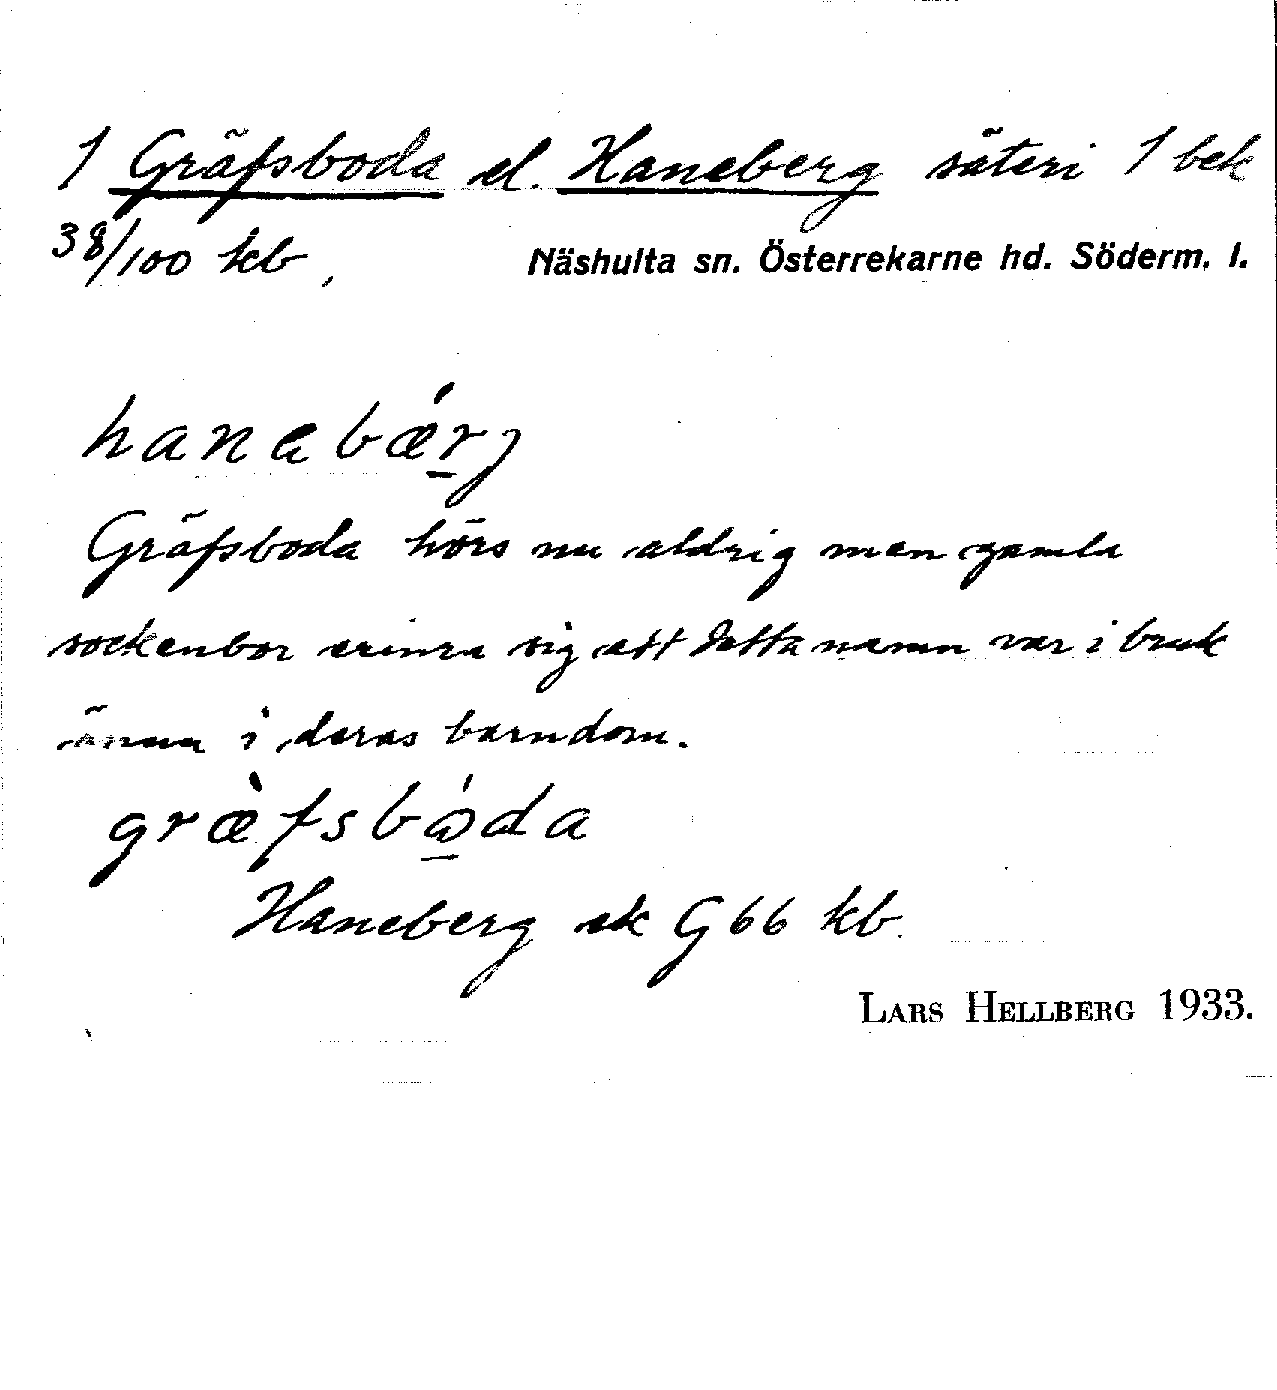 1 Gräfsboda el. Haneberg säteri 1 bek
38/100 kb, Näshulta sn. Österrekarne hd. Söderm. l.
hanebǽrj
Gräfsboda hörs nu aldrig men gamla
sockenbor erinra sig att detta namn var i bruk
ännu i deras barndom.
græ̀fsbώda
Haneberg ek G 66 kb.
LARS HELLBERG 1933.